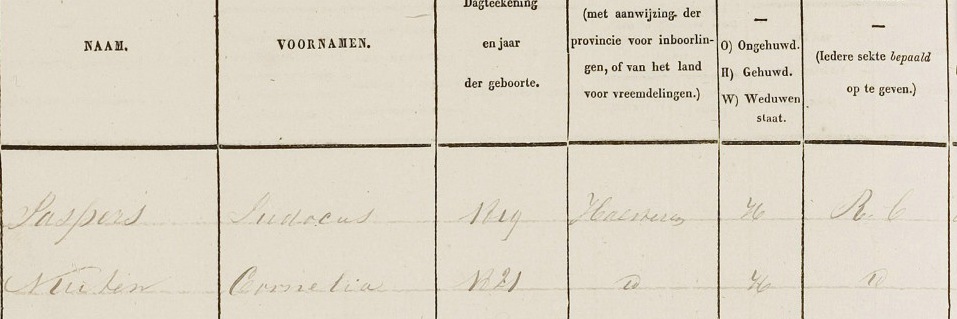 NAAM.
VOORNAMEN.
Dagteekening
en jaar
der geboorte.
(met aanwijzing der
provincie voor inboorlin-
gen, of van het land
voor vreemdelingen.)
O) Ongehuwd.
H) Gehuwd.
W) Weduwen
staat.
(Iedere sekte bepaald
op te geven.)
Jaspers Judocus H R. C
Cornelia 1821 D H D